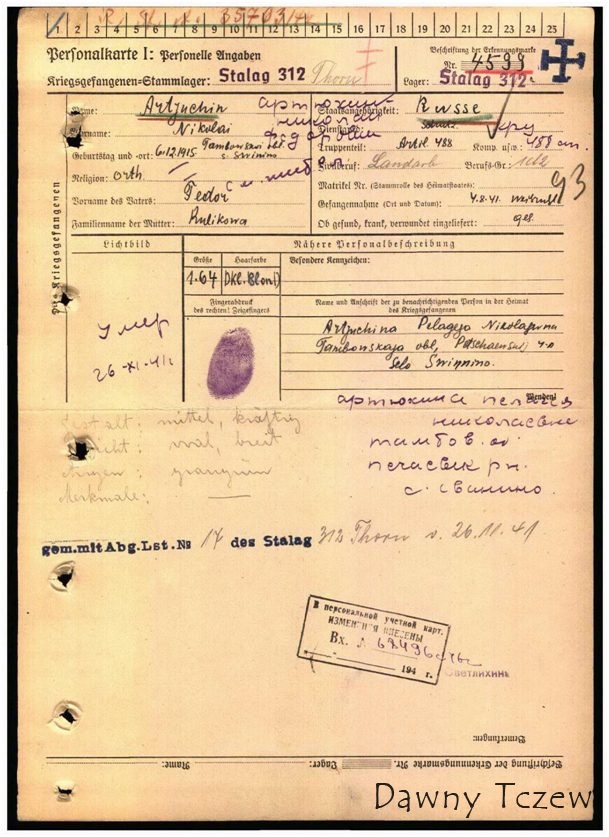 1 2 3 4 5 6 7 8 9 10 11 12 13 14 15 16 17 18 19 20 21 22 23 24 25
Personalkarte I: Personelle Angaben
Beschriftung der Erkennungsmarke
Nr. 4599
Kriegsgefangenen-Stammlager: Stalag 312 Thorn
Lager: Stalag 312
Name: Artjuchin
артюхин
Staatsangehörigkeit: Russe
Vorname: Nikolai
николай
Dienstgrad:
Geburtstag und -ort: 6.12.1915 Tambowskaj obl.
s. Swinino
федорови
Truppenteil: Artl 488 Komp. usw.:
Religion: orth.
Zivilberuf: Landarb Berufs-Gr.:
Matrikel Nr. (Stammrolle des Heimatstaates):
93
Vorname des Vaters: Fedor
Gefangennahme (Ort und Datum): 4.8.41.
Familienname der Mutter: Kulikowa
Ob gesund, krank, verwundet eingeliefert: ges.
Des Kriegsgefangenen
Lichtbild
Nähere Personalbeschreibung
Größe Haarfarbe
Besondere Kennzeichen:
1.64 Dkl. Blond
Fingerabdruck
des rechten! Zeigefingers
Name und Anschrift der zu benachrichtigenden Person in der Heimat
des Kriegsgefangenen
умер
26-XI-41г
Artjuchina Pelageja Nikolajewna
Tambowskaja obl,
Selo Swinnino.
Wenden!
артюхина пелагея
николаевне
тамбов. об
р.н.
с. свинино.
Gestalt: mittel, kräftig
Gesicht: oval, breit
Augen: graugrün
Merkmale: —
gem. mit Abg. Lst. № 17 des Stalag 312 Thorn v. 26.11.41
В персональной учетной карт.
ИЗМЕНЕНИЯ ВНЕСЕНЫ
Вх. №
194 г.
Светлихинь
Bemerkungen:
Beschriftung der Erkennungsmarke Nr. Lager: Name:
Dawny Tczew